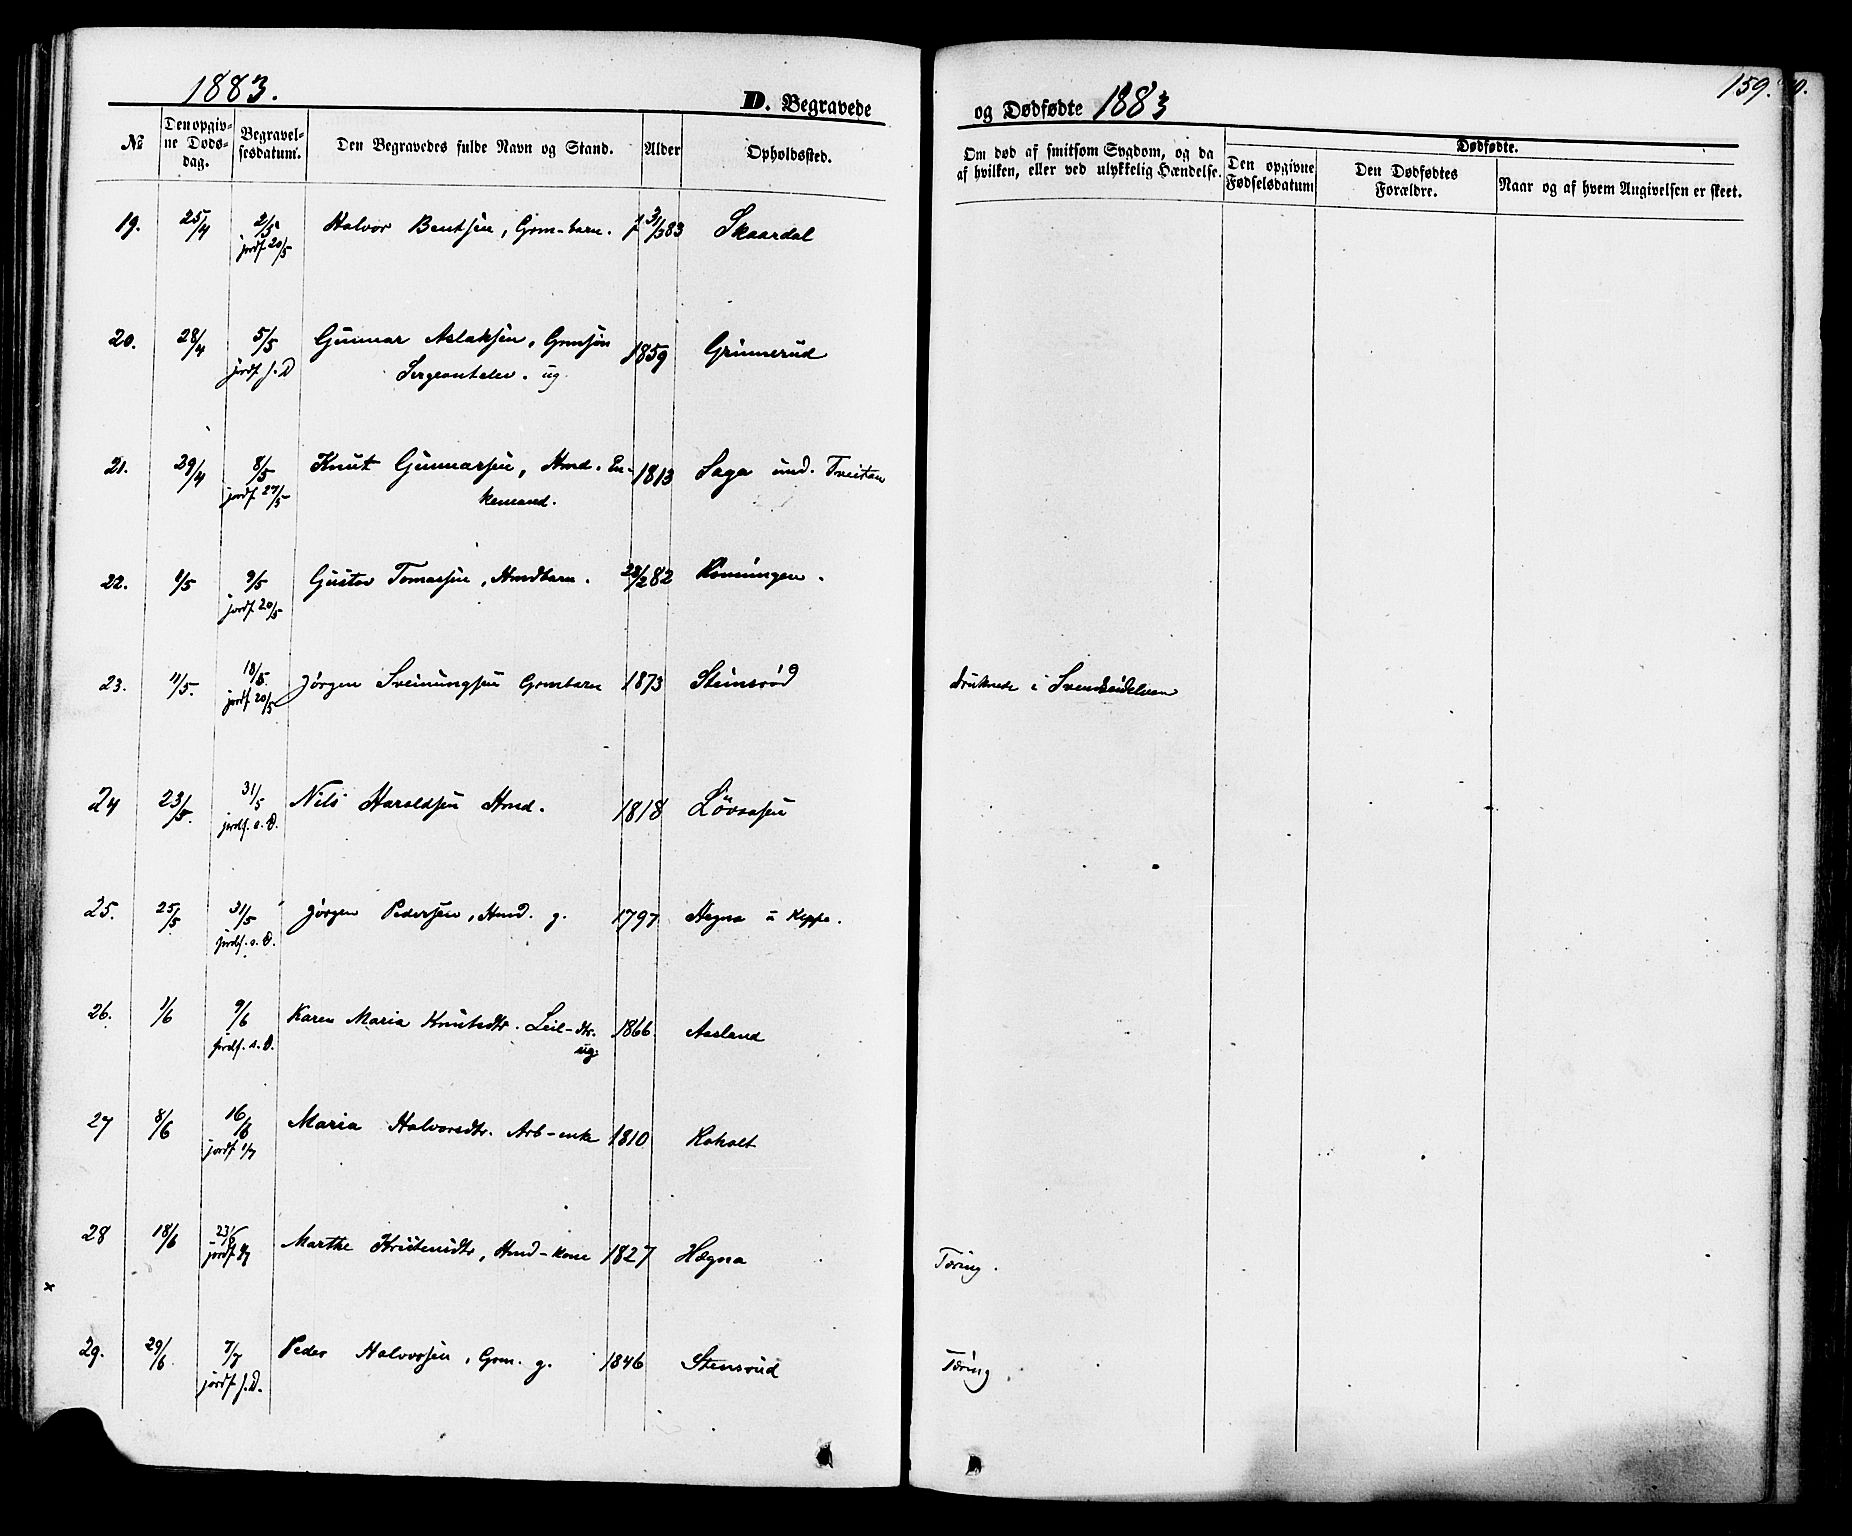 1883.
D. Begravede
og Dødfødte 1883
159.
№
Den opgiv-
ne Døds-
dag.
Begravel-
sesdatum.
Den Begravedes fulde Navn og Stand.
Alder
Opholdssted.
Om død af smitsom Sygdom, og da
af hvilken, eller ved ulykkelig Hændelse.
Dødfødte.
Den opgivne
Fødselsdatum
Den Dødfødtes
Forældre.
Naar og af hvem Angivelsen er skeet.
19. 25/4 2/5 Halvor Bentsen, Grm-barn. f 3/1083 Skaardal
jordf. 20/5
20. 28/4 5/5 Gunnar Aslaksen, Grmsøn 1859 Grinnerud
jordf. s. D Sergeantelev. ug
21. 29/4 8/5 Knut Gunnarsen, Hmd. En- 1813 Saga und. Tveitan
jordf. 27/5 kemand.
22. 1/5 9/5 Gustav Tomassen, Hmdbarn. 28/2 82 Rønningen.
jordf. 20/5
23. 11/5. 18/5. Jørgen Sveinungsen Grmbarn 1873 Stensrød druknede i
jordf. 20/5
24 23/5. 31/5 Nils Haraldsen Hmd. 1818 Løvaasen
jordf. s. D.
25. 25/5 31/5 Jørgen Pedersen, Hmd. g. 1797 Hegna u Keppe.
jordf. s. D.
26. 1/6 9/6 Karen Maria Knutsdtr. Leil-dtr. 1866. Aasland
jordf. s. D. ug.
27 8/6 16/6 Maria Halvorsdtr. Arb-enke 1810 Roholt
jordf. 1/7
28 18/6 23/6 Marthe Kristensdtr, Hmd-kone 1827 Hægna Tæring.
jordf.
29. 29/6 7/7 Peder Halvorsen, Grm. g. 1846 Stensrud Tæring
jordf. s. D.